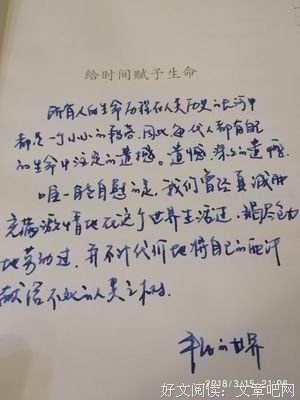 给时间赋予生命
所有人的生命历程在人类历史的长河中
都是一个小小的段落,因此每代人都有自己
的生命中注定的遗憾。遗憾,深深的遗憾.
唯一能自慰的是,我们曾经真诚而
充满激情地在这个世界生活过,竭尽全力
地劳动过,并不计代价地将自己的血汗
献给不死的人类之树.
平凡的世界
2018/3/15 21:06
好文阅读:文章吧网